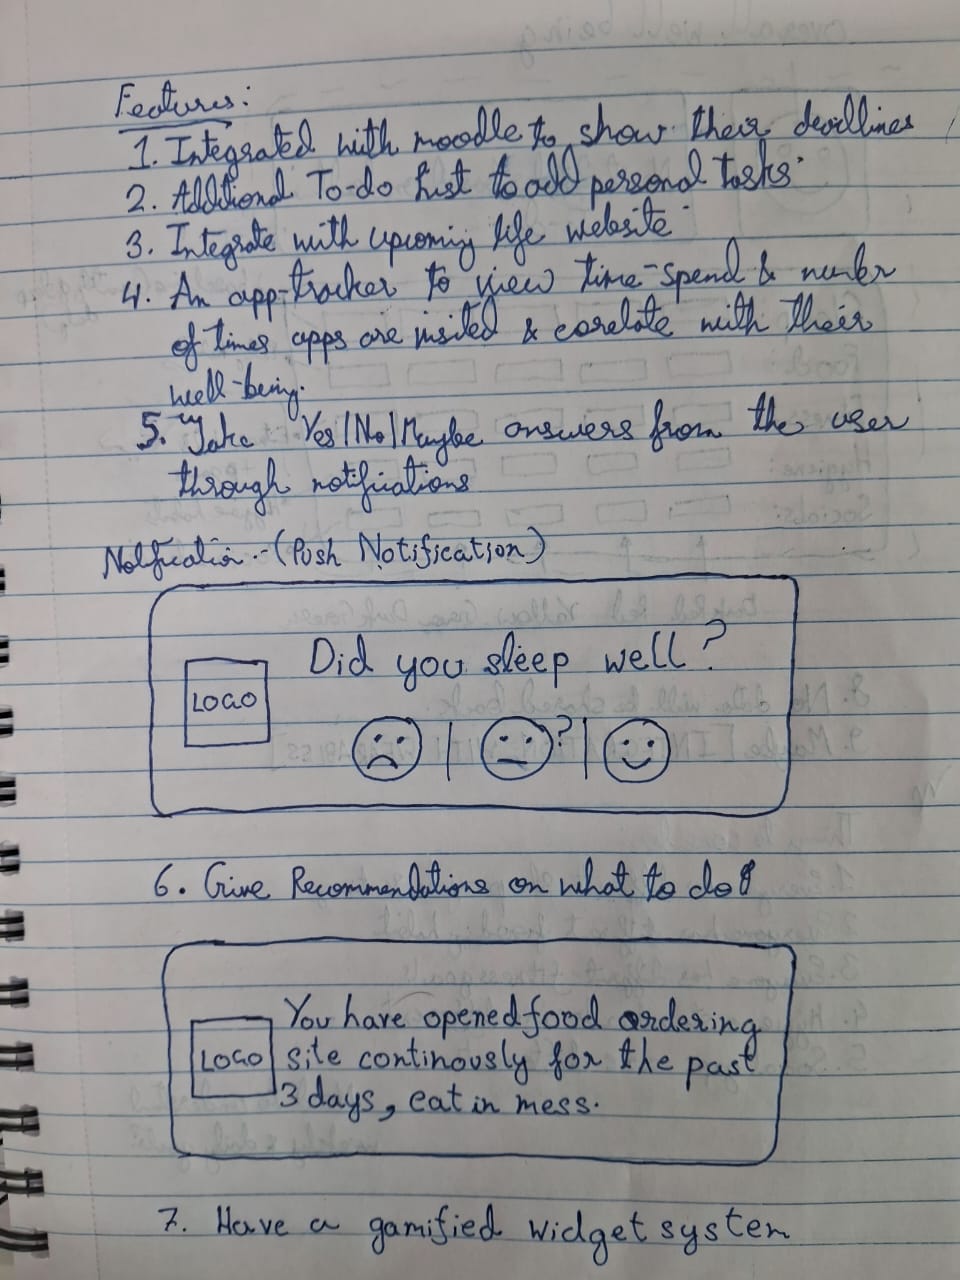 Features:
1. Integrated with moodle to show their deadlines
2. Additional To-do list to add personal tasks
3. Integrate with upcoming life website
4. An app-tracker to view time-spend & number
of times apps are visited & corelate with their
well-being.
5. Take Yes/No/Maybe answers from the user
through notifications
Notification:- (Push Notification)
Did you sleep well?
LOGO
?
6. Give Recommendations on what to do
You have opened food ordering
LOGO site continously for the past
3 days, eat in mess.
7. Have a gamified widget system